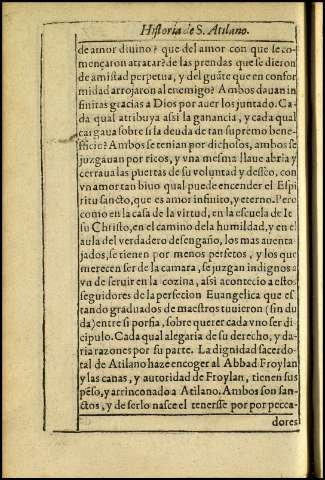 Historia de S. Atilano.
de amor diuino? que del amor con que se co-
mençaron atratar? de las prendas que se dieron
de amistad perpetua, y del guãte que en confor
midad arrojaron al enemigo? Ambos dauan in
finitas gracias a Dios por auer los juntado. Ca-
da qual atribuya assi la ganancia, y cada qual
cargaua sobre si la deuda de tan supremo bene-
ficio? Ambos se tenian por dichosos, ambos se
juzgauan por ricos, y vna mesma llaue abria y
cerraua las puertas de su voluntad y desseo, con
vn amor tan biuo qual puede encender el Espi
ritu sancto, que es amor infinito, y eterno. Pero
como en la casa de la virtud, en la escuela de Ie
su Christo, en el camino dela humildad, y en el
aula del verdadero desengaño, los mas auenta-
jados, se tienen por menos perfetos, y los que
merecen ser de la camara, se juzgan indignos a
vn de seruir en la cozina, assi acontecio a estos
seguidores de la perfecion Euangelica que es
tando graduados de maestros tuuieron (sin du
da) entre si porfia, sobre querer cada vno ser di-
cipulo. Cada qual alegaria de su derecho, y da-
ria razones por su parte. La dignidad sacerdo-
tal de Atilano haze encoger al Abbad Froylan
y las canas, y autoridad de Froylan, tienen sus
pẽso, y arrinconado a Atilano. Ambos son san-
ctos, y de serlo nasce el tenersse por por pecca-
dores